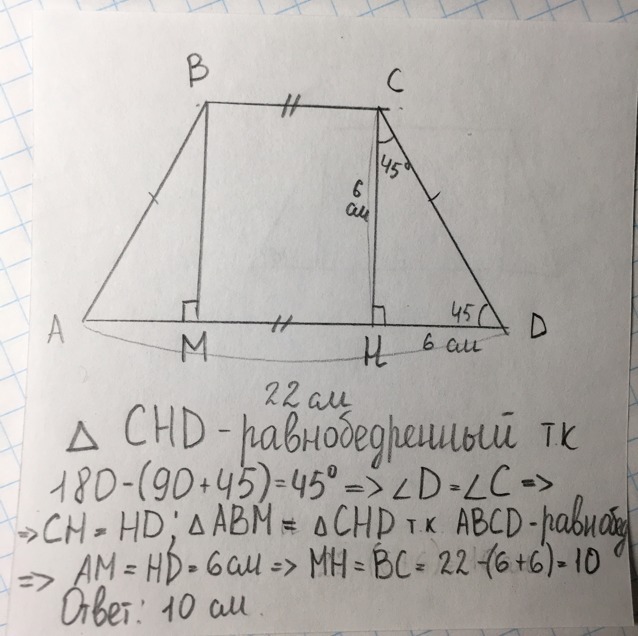 B C
45°
6
см
A M H D
45
6 см
22 см
Δ CHD - равнобедренный т.к
180-(90+45)=45° => ∠D=∠C =>
=> CH = HD; Δ ABM = Δ CHD т.к ABCD - равнобед
=> AM = HD = 6 см => MH = BC = 22-(6+6)=10
Ответ: 10 см.